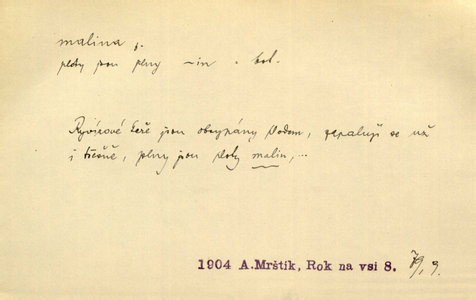 malina, f.
ploty jsou plny ~in . bot.
keře jsou obsypány plodem, zapalují se už
i třešně, plny jsou ploty malin,...
1904 A.Mrštík, Rok na vsi 8. 79, 9.